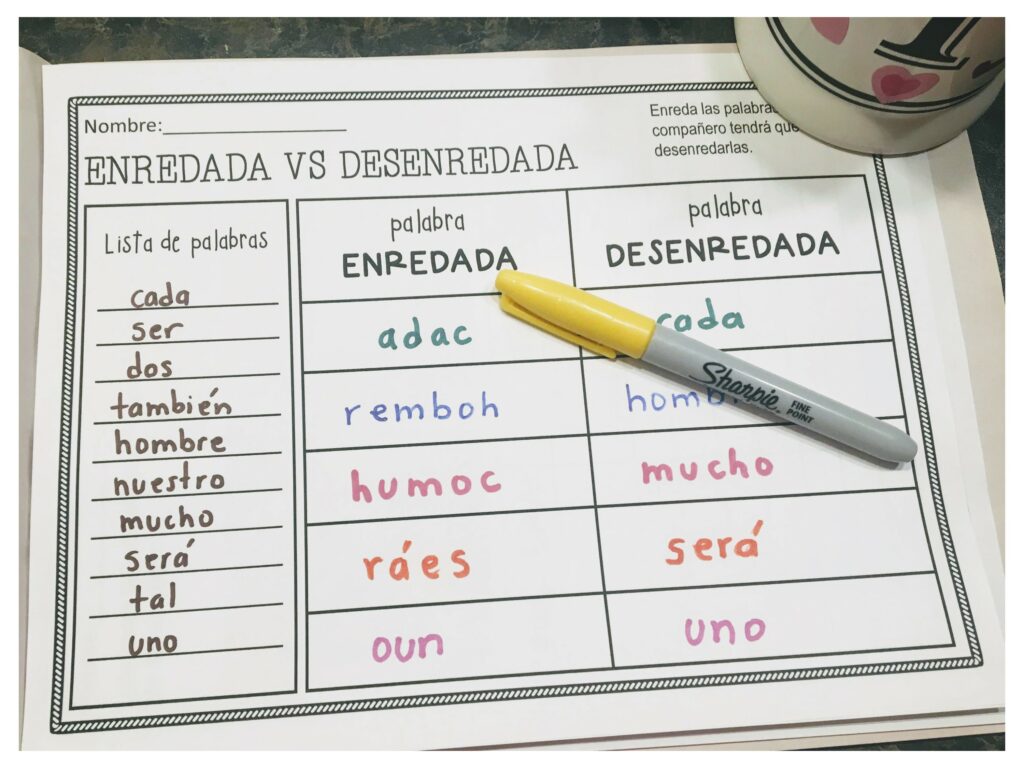 Nombre:
Enreda las palabras
compañero tendrá que
desenredarlas.
ENREDADA VS DESENREDADA
Lista de palabras
cada
ser
dos
también
hombre
nuestro
mucho
será
tal
uno
palabra
ENREDADA
palabra
DESENREDADA
adac
cada
remboh
humoc
mucho
ráes
será
oun
uno
Sharpie
FINE
POINT